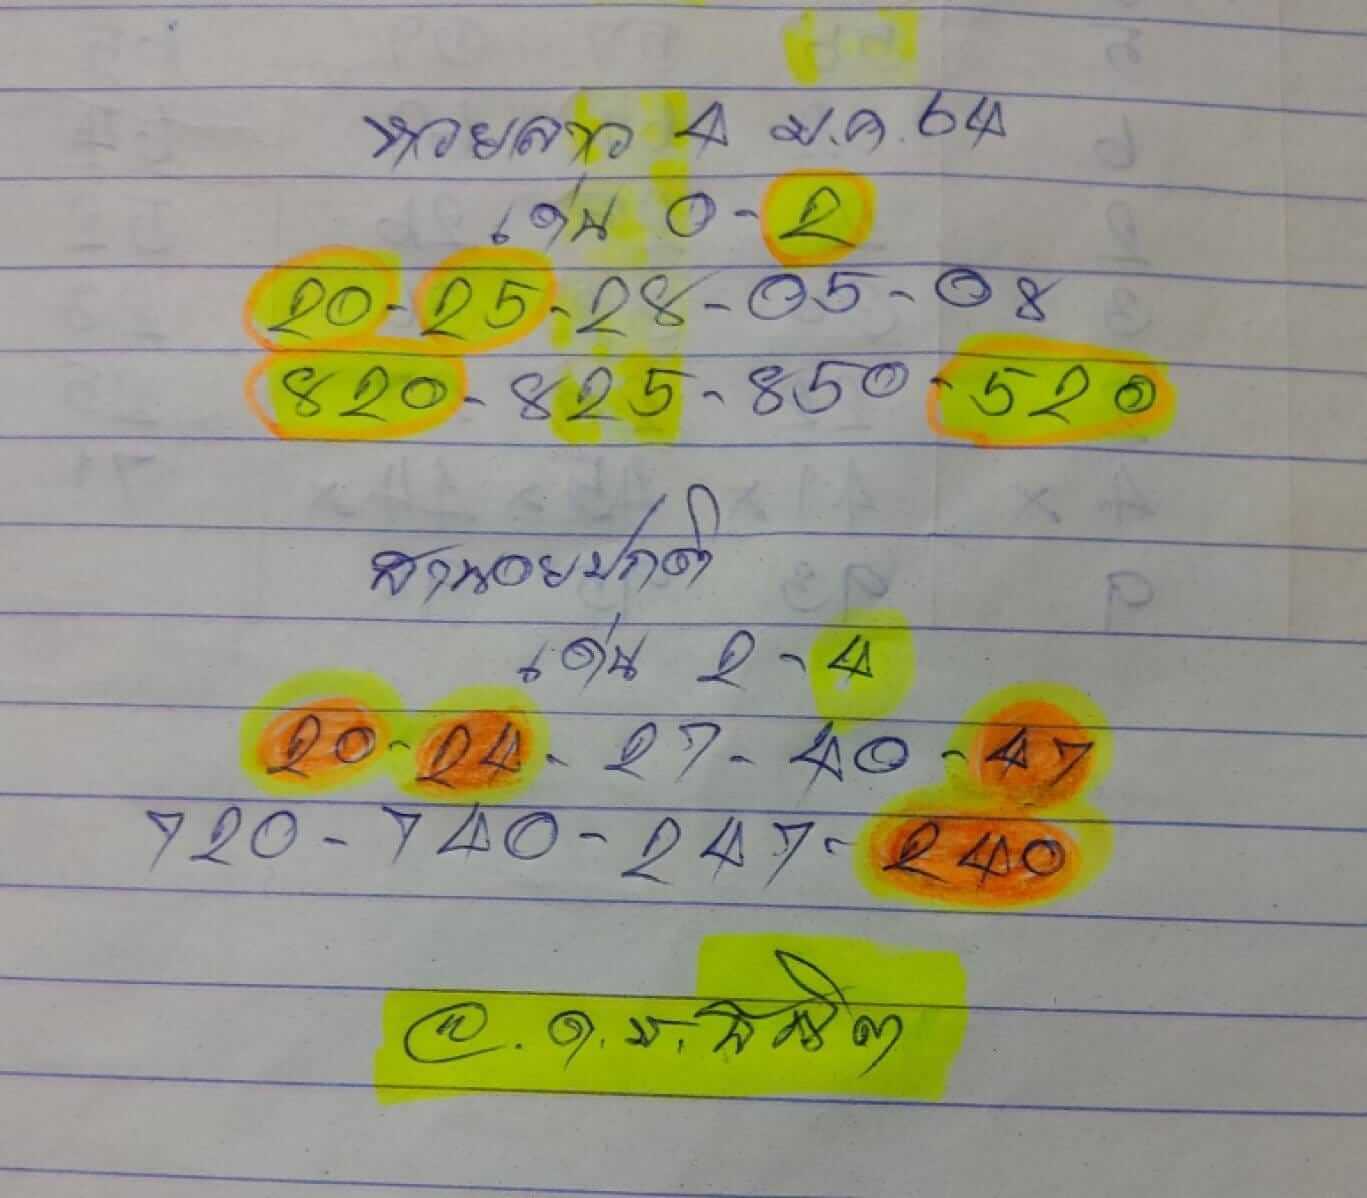 หวยลาว 4 ม.ค.64
เด่น 0-2
20-25-28-05-08
820-825-850-520
ฮานอยปกติ
เด่น 2-4
20-24-27-40-47
720-740-247-240
@.ด.ม.พิชิต